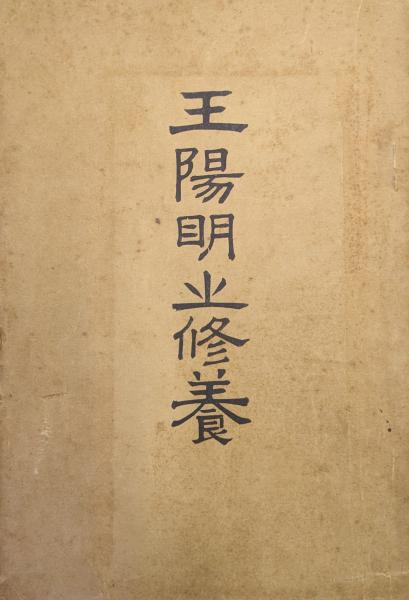 王陽明之修養